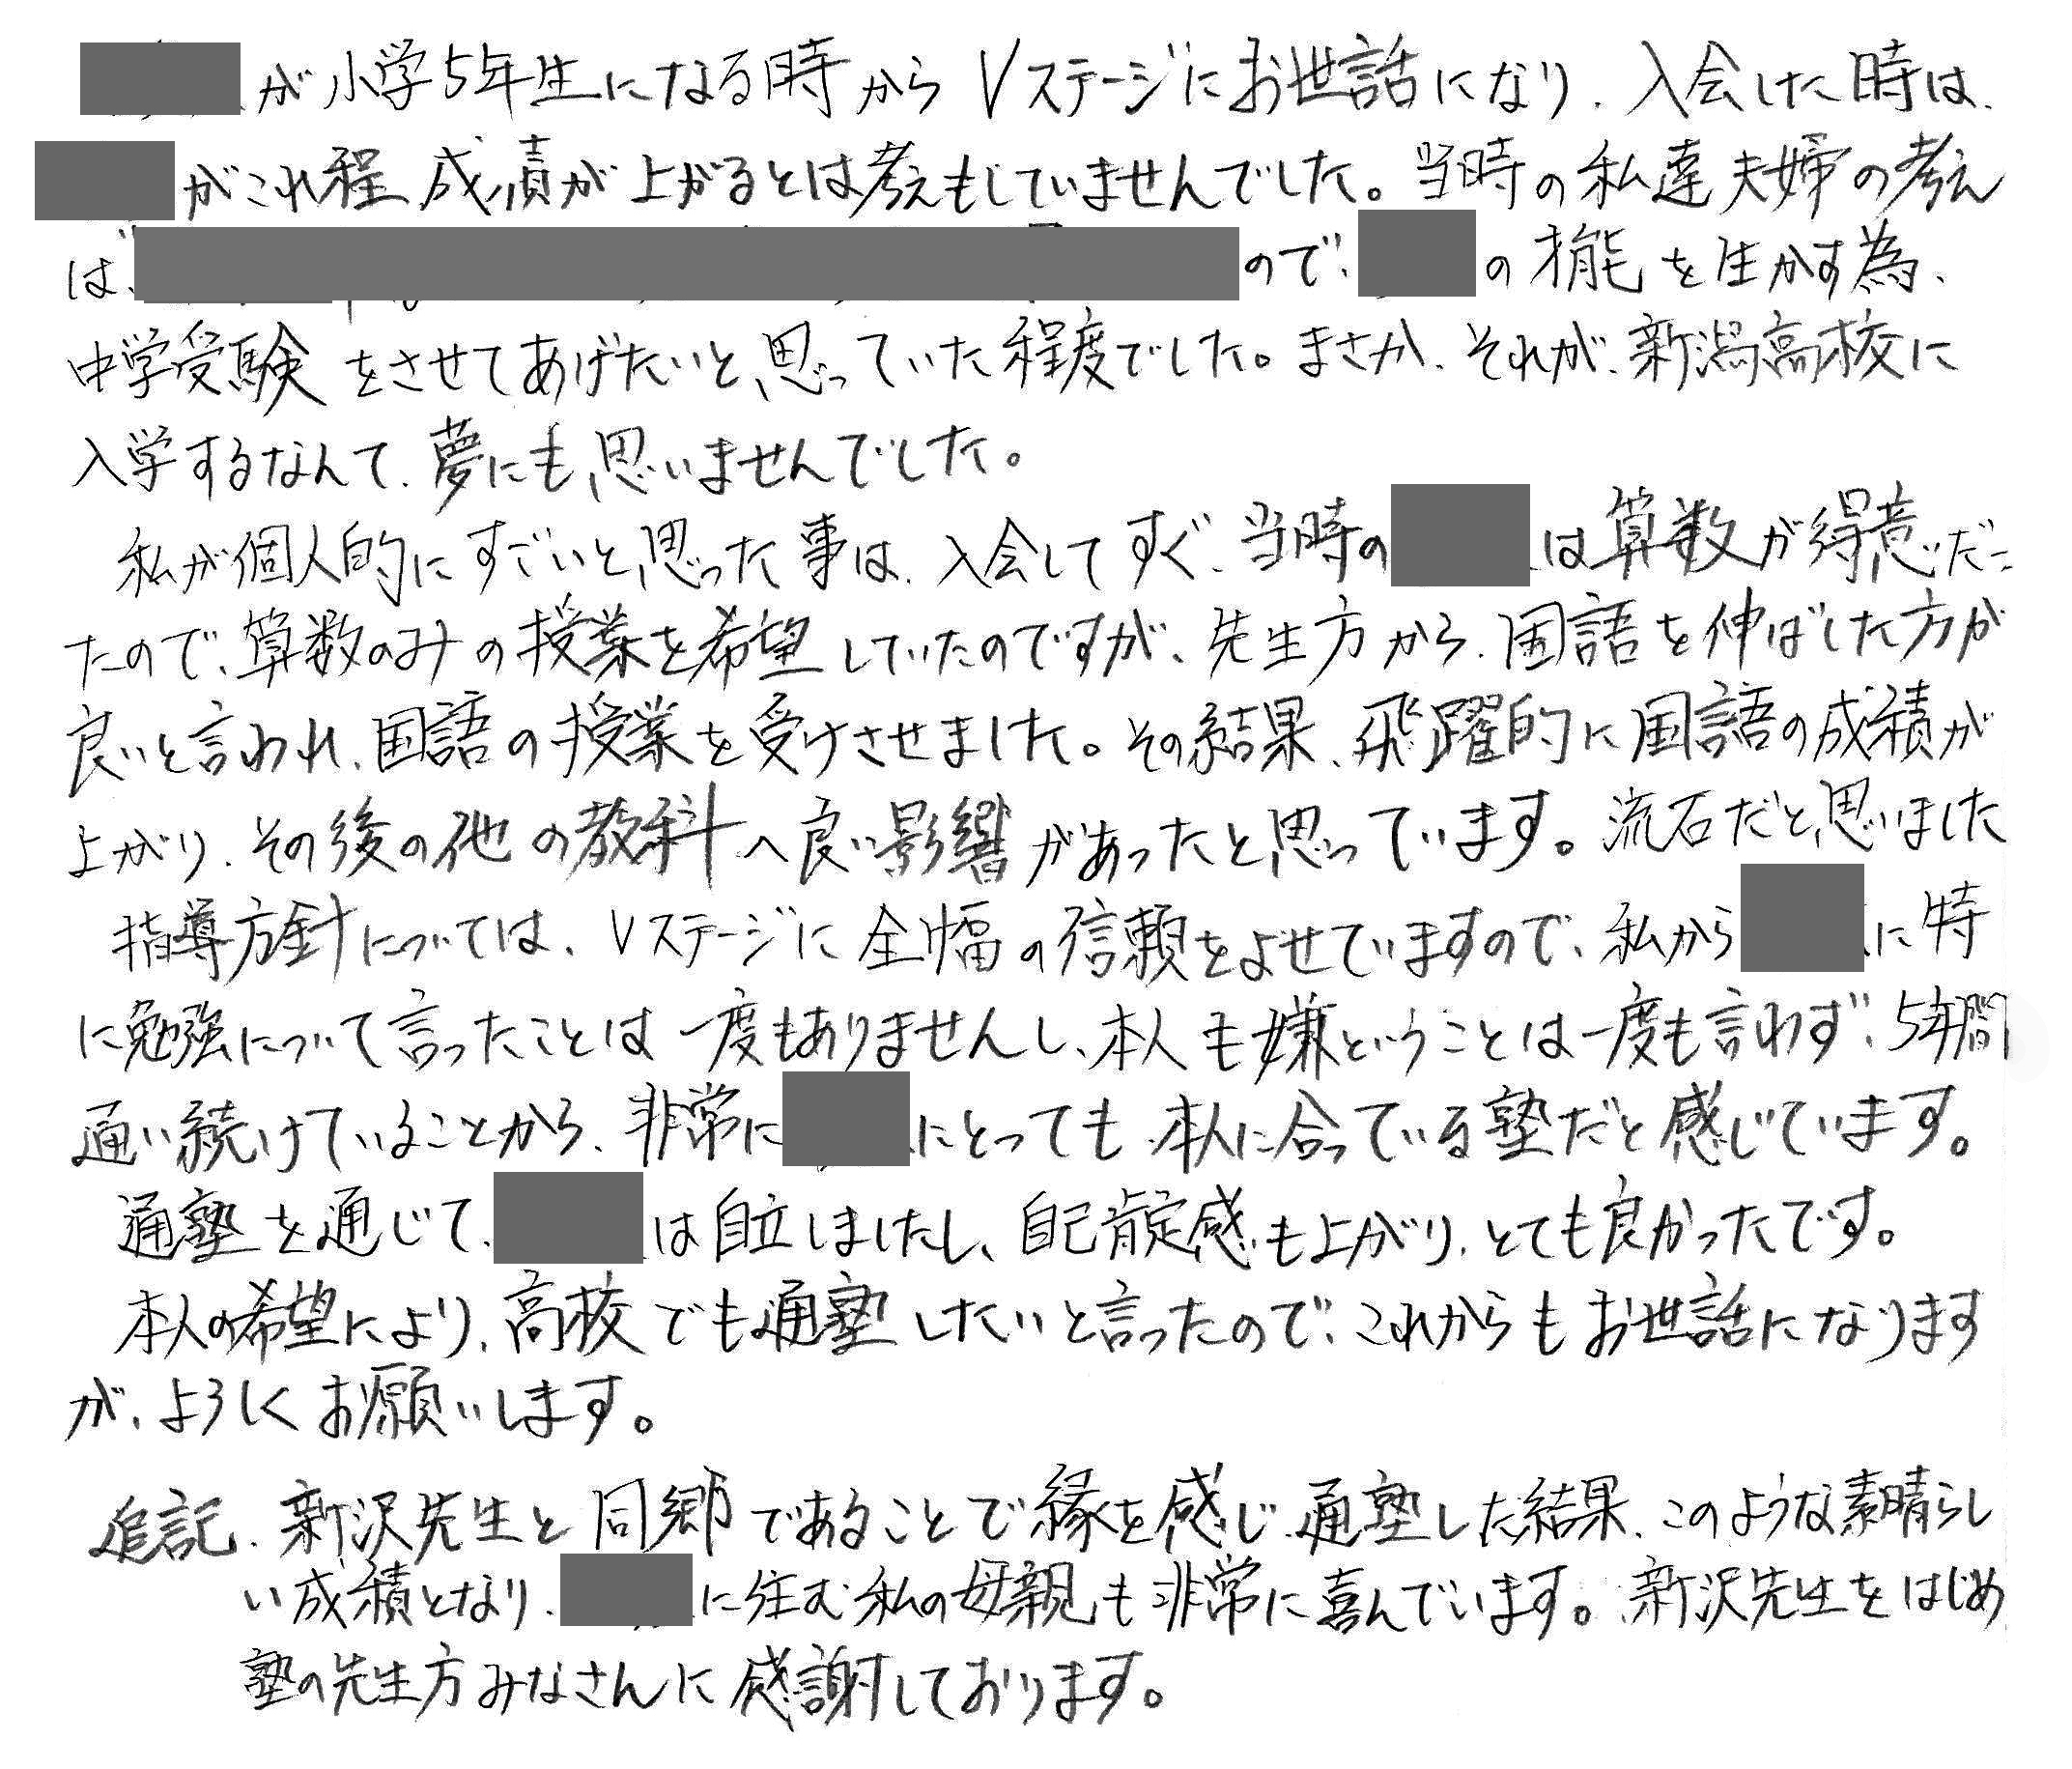 が小学5年生になる時からVステージにお世話になり、入会した時は、
がこれ程、成績が上がるとは考えもしていませんでした。当時の私達夫婦の考え
は、ので、の才能を生かす為、
中学受験をさせてあげたいと思っていた程度でした。まさか、それが、新潟高校に
入学するなんて、夢にも思いませんでした。
私が個人的にすごいと思った事は、入会してすぐ、当時のは算数が得意だっ
たので、算数のみの授業を希望していたのですが、先生方から、国語を伸ばした方が
良いと言われ、国語の授業を受けさせました。その結果、飛躍的に国語の成績が
上がり、その後の他の教科へ良い影響があったと思っています。流石だと思いました
指導方針については、Vステージに全幅の信頼をよせていますので、私からに特
に勉強について言ったことは一度もありませんし、本人も嫌ということは一度も言わず、5年間
通い続けていることから、非常ににとっても本人に合っている塾だと感じています。
通塾を通じて、は自立しましたし、自己肯定感も上がり、とても良かったです。
本人の希望により、高校でも通塾したいと言ったので、これからもお世話になります
が、よろしくお願いします。
追記、新沢先生と同郷であることで縁を感じ、通塾した結果、このような素晴らし
い成績となり、に住む私の母親も非常に喜んでいます。新沢先生をはじめ
塾の先生方みなさんに感謝しております。